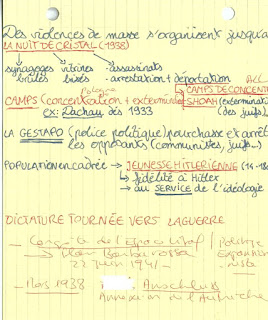 Des violences de masse s'organisent jusqu'à
LA NUIT DE CRISTAL (1938)
synagogues vitrines → assassinats
brûlés brisés → arrestation + déportation
Pologne
CAMPS (concentration + extermination CAMPS DE CONCENT
SHOAH (extermination
ex: Dachau dès 1933 (des juifs
LA GESTAPO (police politique) pourchasse et arrêt
les opposants (communistes, juifs...)
POPULATION encadrée → JEUNESSE HITLERIÉNNE (14-18
→ fidélité à Hitler
→ au SERVICE de l'idéologie
DICTATURE TOURNÉE VERS LA GUERRE
- Conquête de l' / Politique
Plan Barbarossa / Expansion
22 juin 1941 niste
- Mars 1938 Anschluss
Annexion de l'Autriche